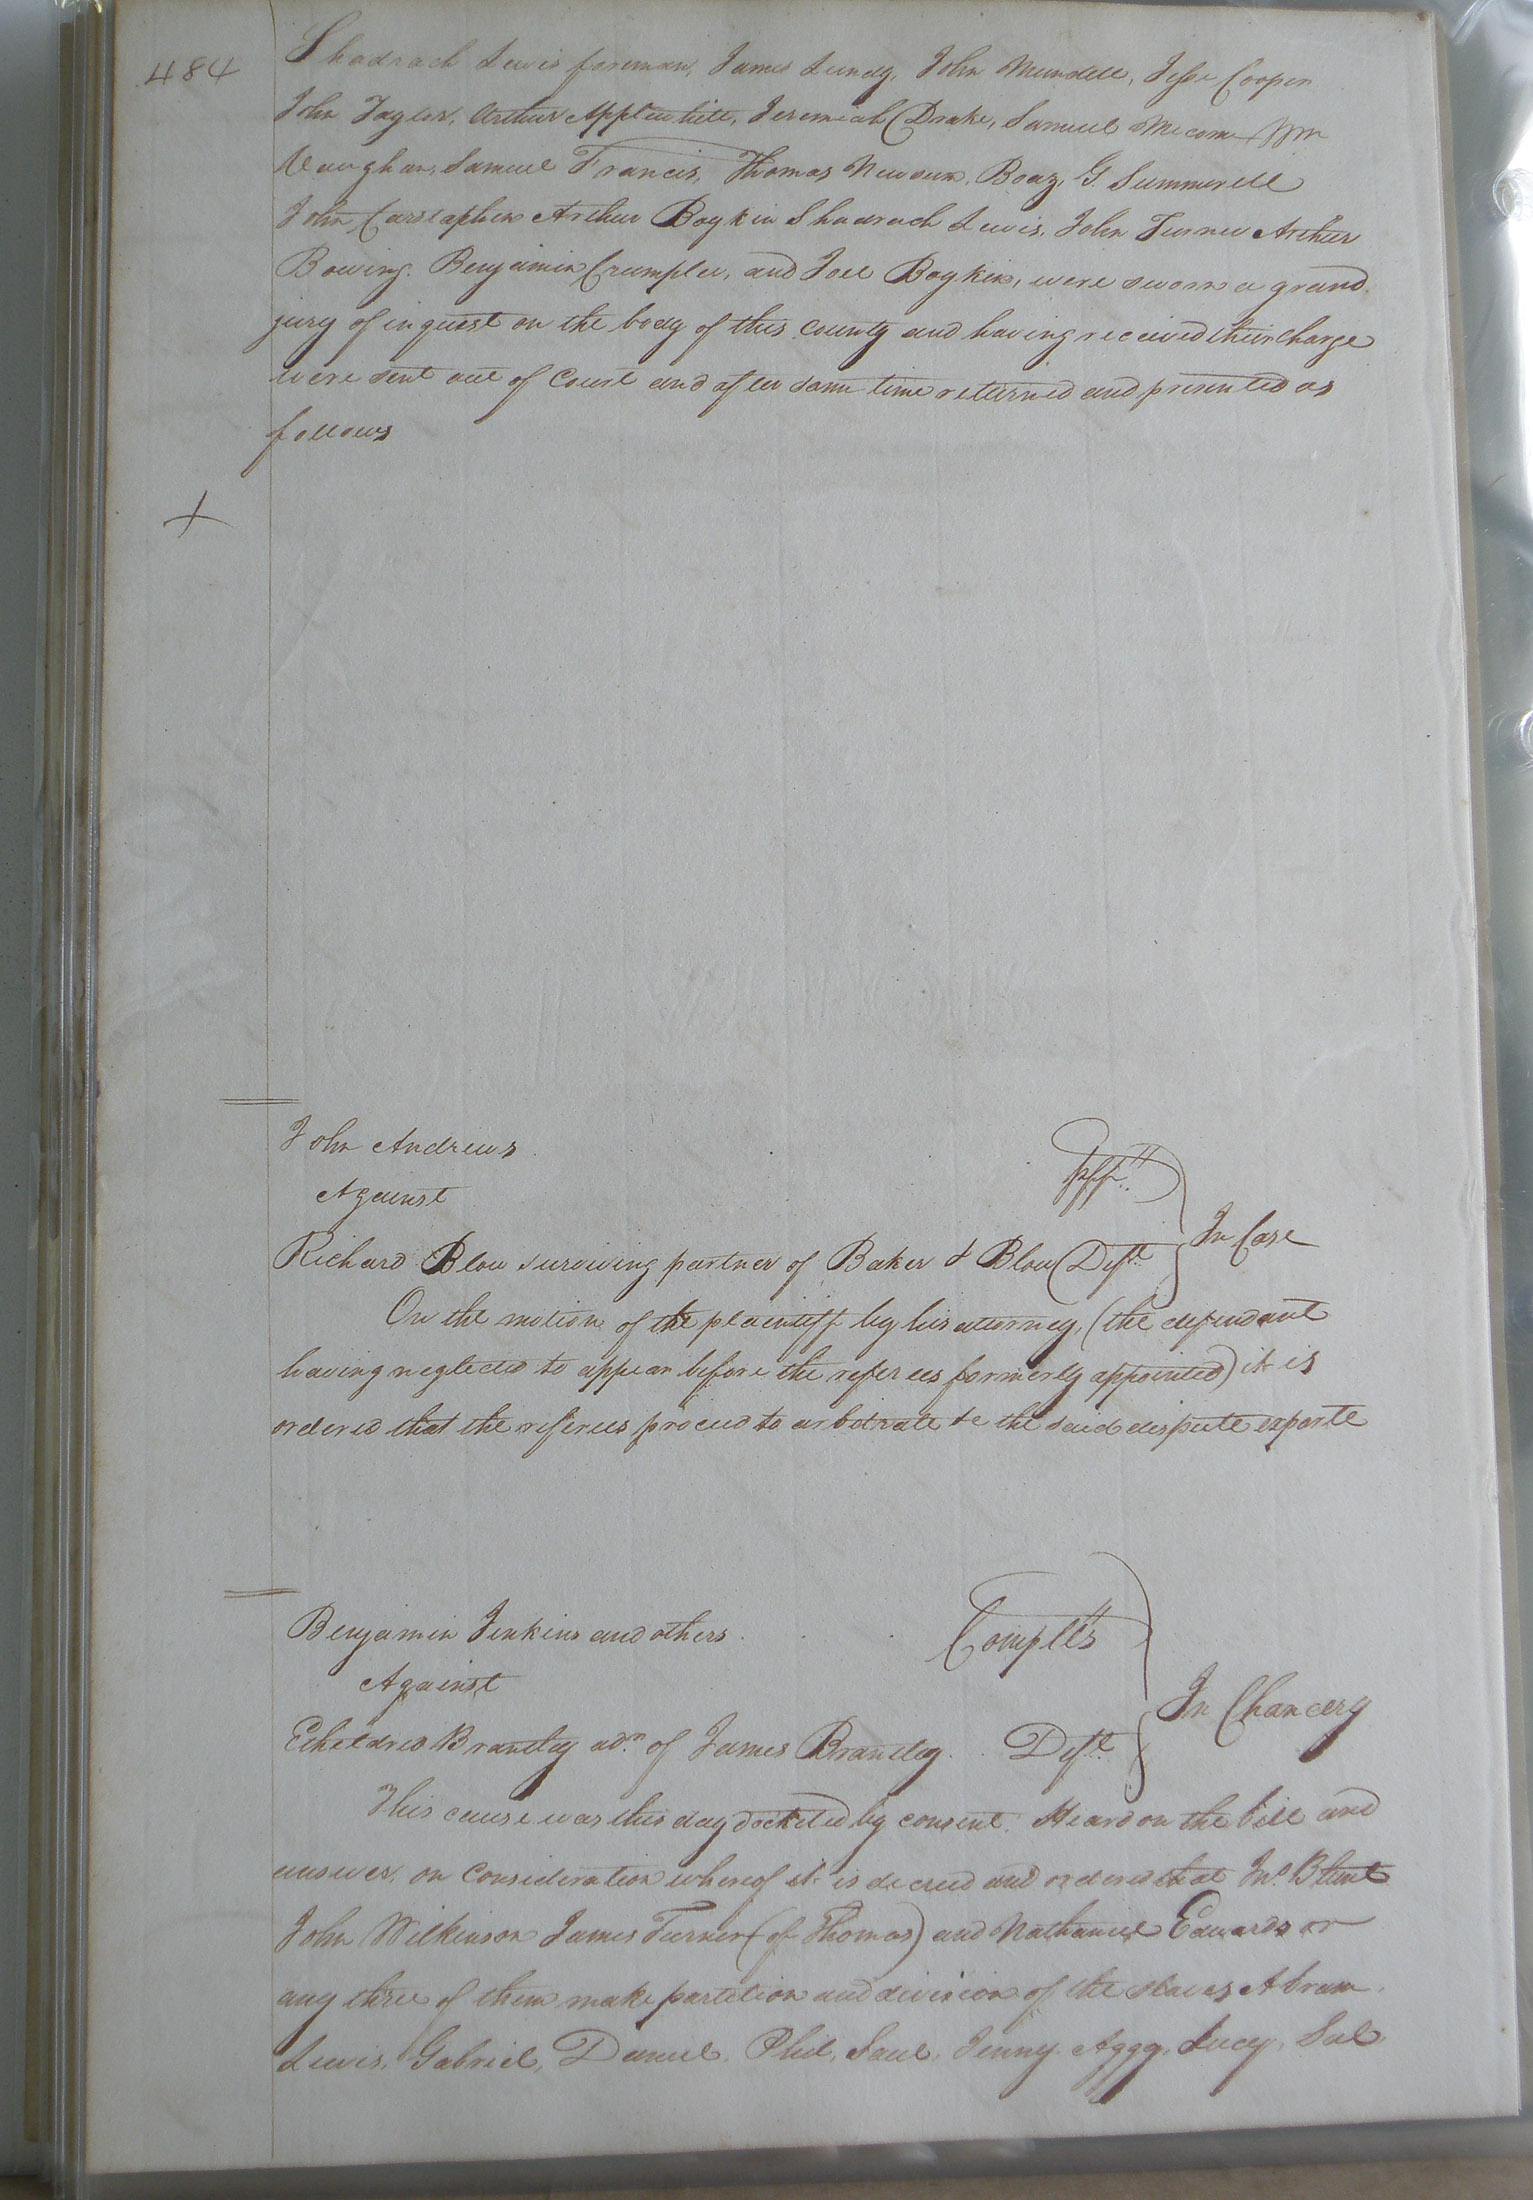 484
Shadrach Lewis foreman, James Lundy, John Mundell, Jesse Cooper
John Taylor, Arthur Applewhite, Jeremiah Drake, Samuel Mecom Wm
Vaughan, Samuel Francis, Thomas Newsum, Boaz G. Summerell
John Carstaphen Arthur Boykin Shadrach Lewis, John Turner Arthur
Bowing, Benjamin Crumpler, and Joel Boykin, were sworn a grand
jury of inquest on the body of this county and having received their charge
were sent out of Court and after some time returned and presented as
follows
+
John Andrews
Against
plff
Richard Blow surviving partner of Baker & Blow Deft
In Case
On the motion of the plaintiff by his attorney, (the defendant
having neglected to appear before the referees formerly appointed) it is
ordered that the referees proceed to arbitrate &c the said dispute exparte
Benjamin Jenkins and others
Complts
Against
In Chancery
Etheldred Brantley adr. of James Brantley Deft
This cause was this day docketed by consent. Heard on the bill and
answer, on consideration whereof it is decreed and ordered that Jno. Blunt
John Wilkinson James Turner (of Thomas) and Nathaniel Edwards or
any three of them make partition and division of the slaves Abram,
Lewis, Gabriel, Daniel, Phil, Saul, Jenny Aggy, Lucy, Sal